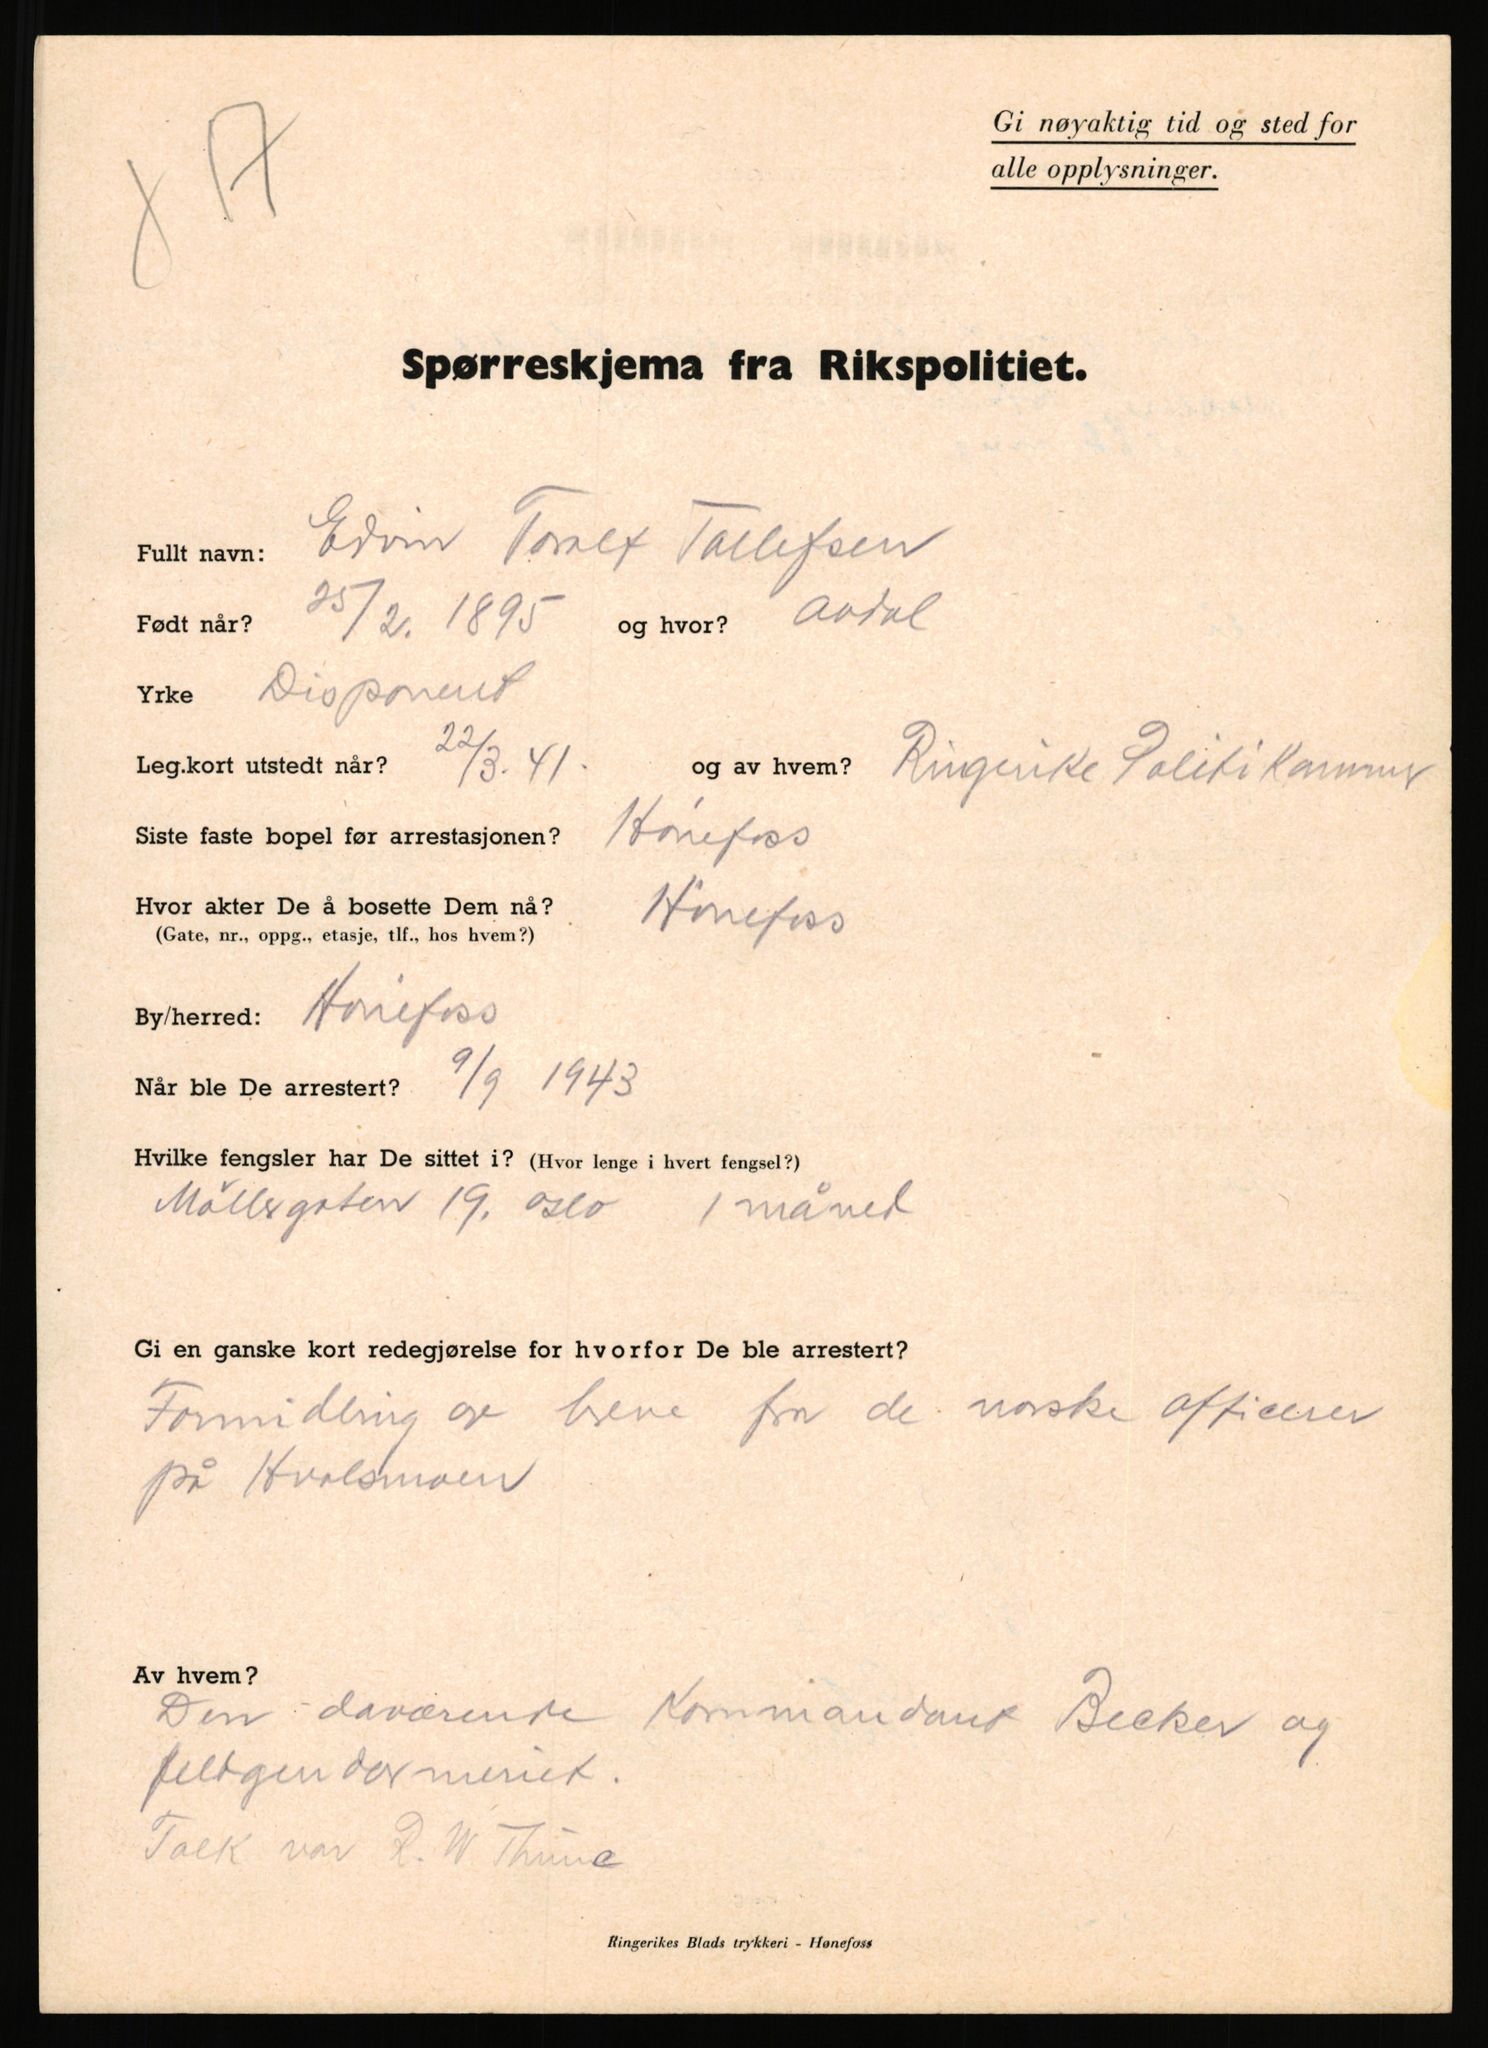 Gi nøyaktig tid og sted for
alle opplysninger.
Spørreskjema fra Rikspolitiet.
Fullt navn: Edvin Toralf Tallefsen
Født når? 25/2. 1895 og hvor? Avdal
Yrke Disponent
Leg.kort utstedt når? 22/3. 41. og av hvem? Ringerike Politikammer
Siste faste bopel før arrestasjonen? Hönefoss
Hvor akter De å bosette Dem nå? Hönefoss
(Gate, nr., oppg., etasje, tlf., hos hvem?)
By/herred: Hönefoss
Når ble De arrestert? 9/9 1943
Hvilke fengsler har De sittet i? (Hvor lenge i hvert fengsel?)
Möllergaten 19. Oslo 1 måned
Gi en ganske kort redegjørelse for hvorfor De ble arrestert?
Formidling av breve fra de norske officerer
på Hvalsmoen
Av hvem?
Den daværende Kommandant Becker og
feldgendarmeriet.
Tolk var R. W Thune
Ringerikes Blads trykkeri - Hønefoss